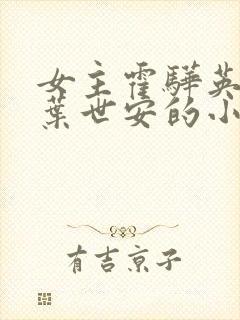 女主霍驊英
葉世安的小
有吉京子